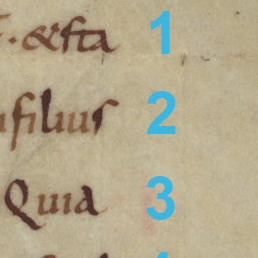 &sta 1
filius 2
Quia 3